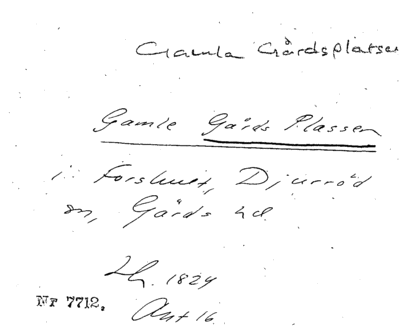 Gamla Gårdsplatsen
Gamle Gårds Plassen
i Forshult, Djurröd
sn, Gärds hd
Lh. 1829
Nr 7712. Akt 16